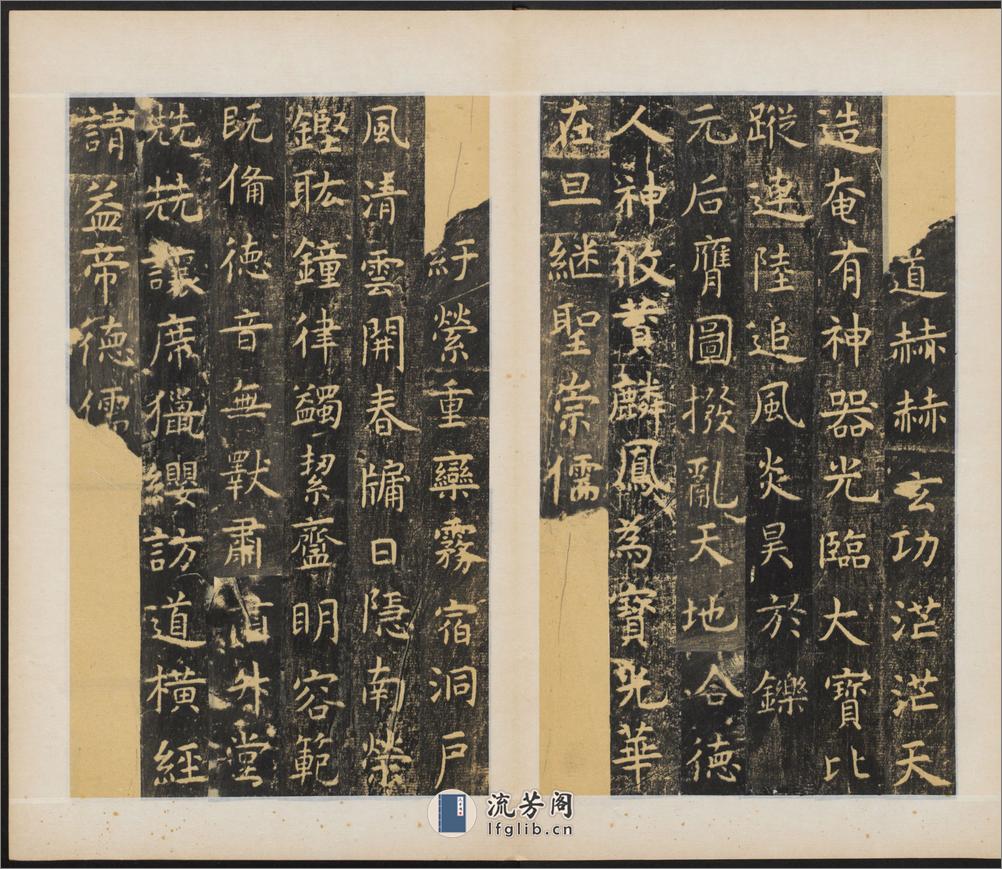 道赫赫玄功茫茫天
造奄有神器光臨大寶比
蹤連陸追風炎昊於鑠
元后膺圖撥亂天地合德
人神攸贊麟鳳為寶光華
在旦継聖崇儒
紆縈重欒霧宿洞戶
風清雲開春牖日隱南榮
鏗耾鐘律蠲絜齍明容範
既備德音無斁肅升堂
兟兟讓席獵纓訪道橫經
請益帝德儒
流芳阁
lfglib.cn